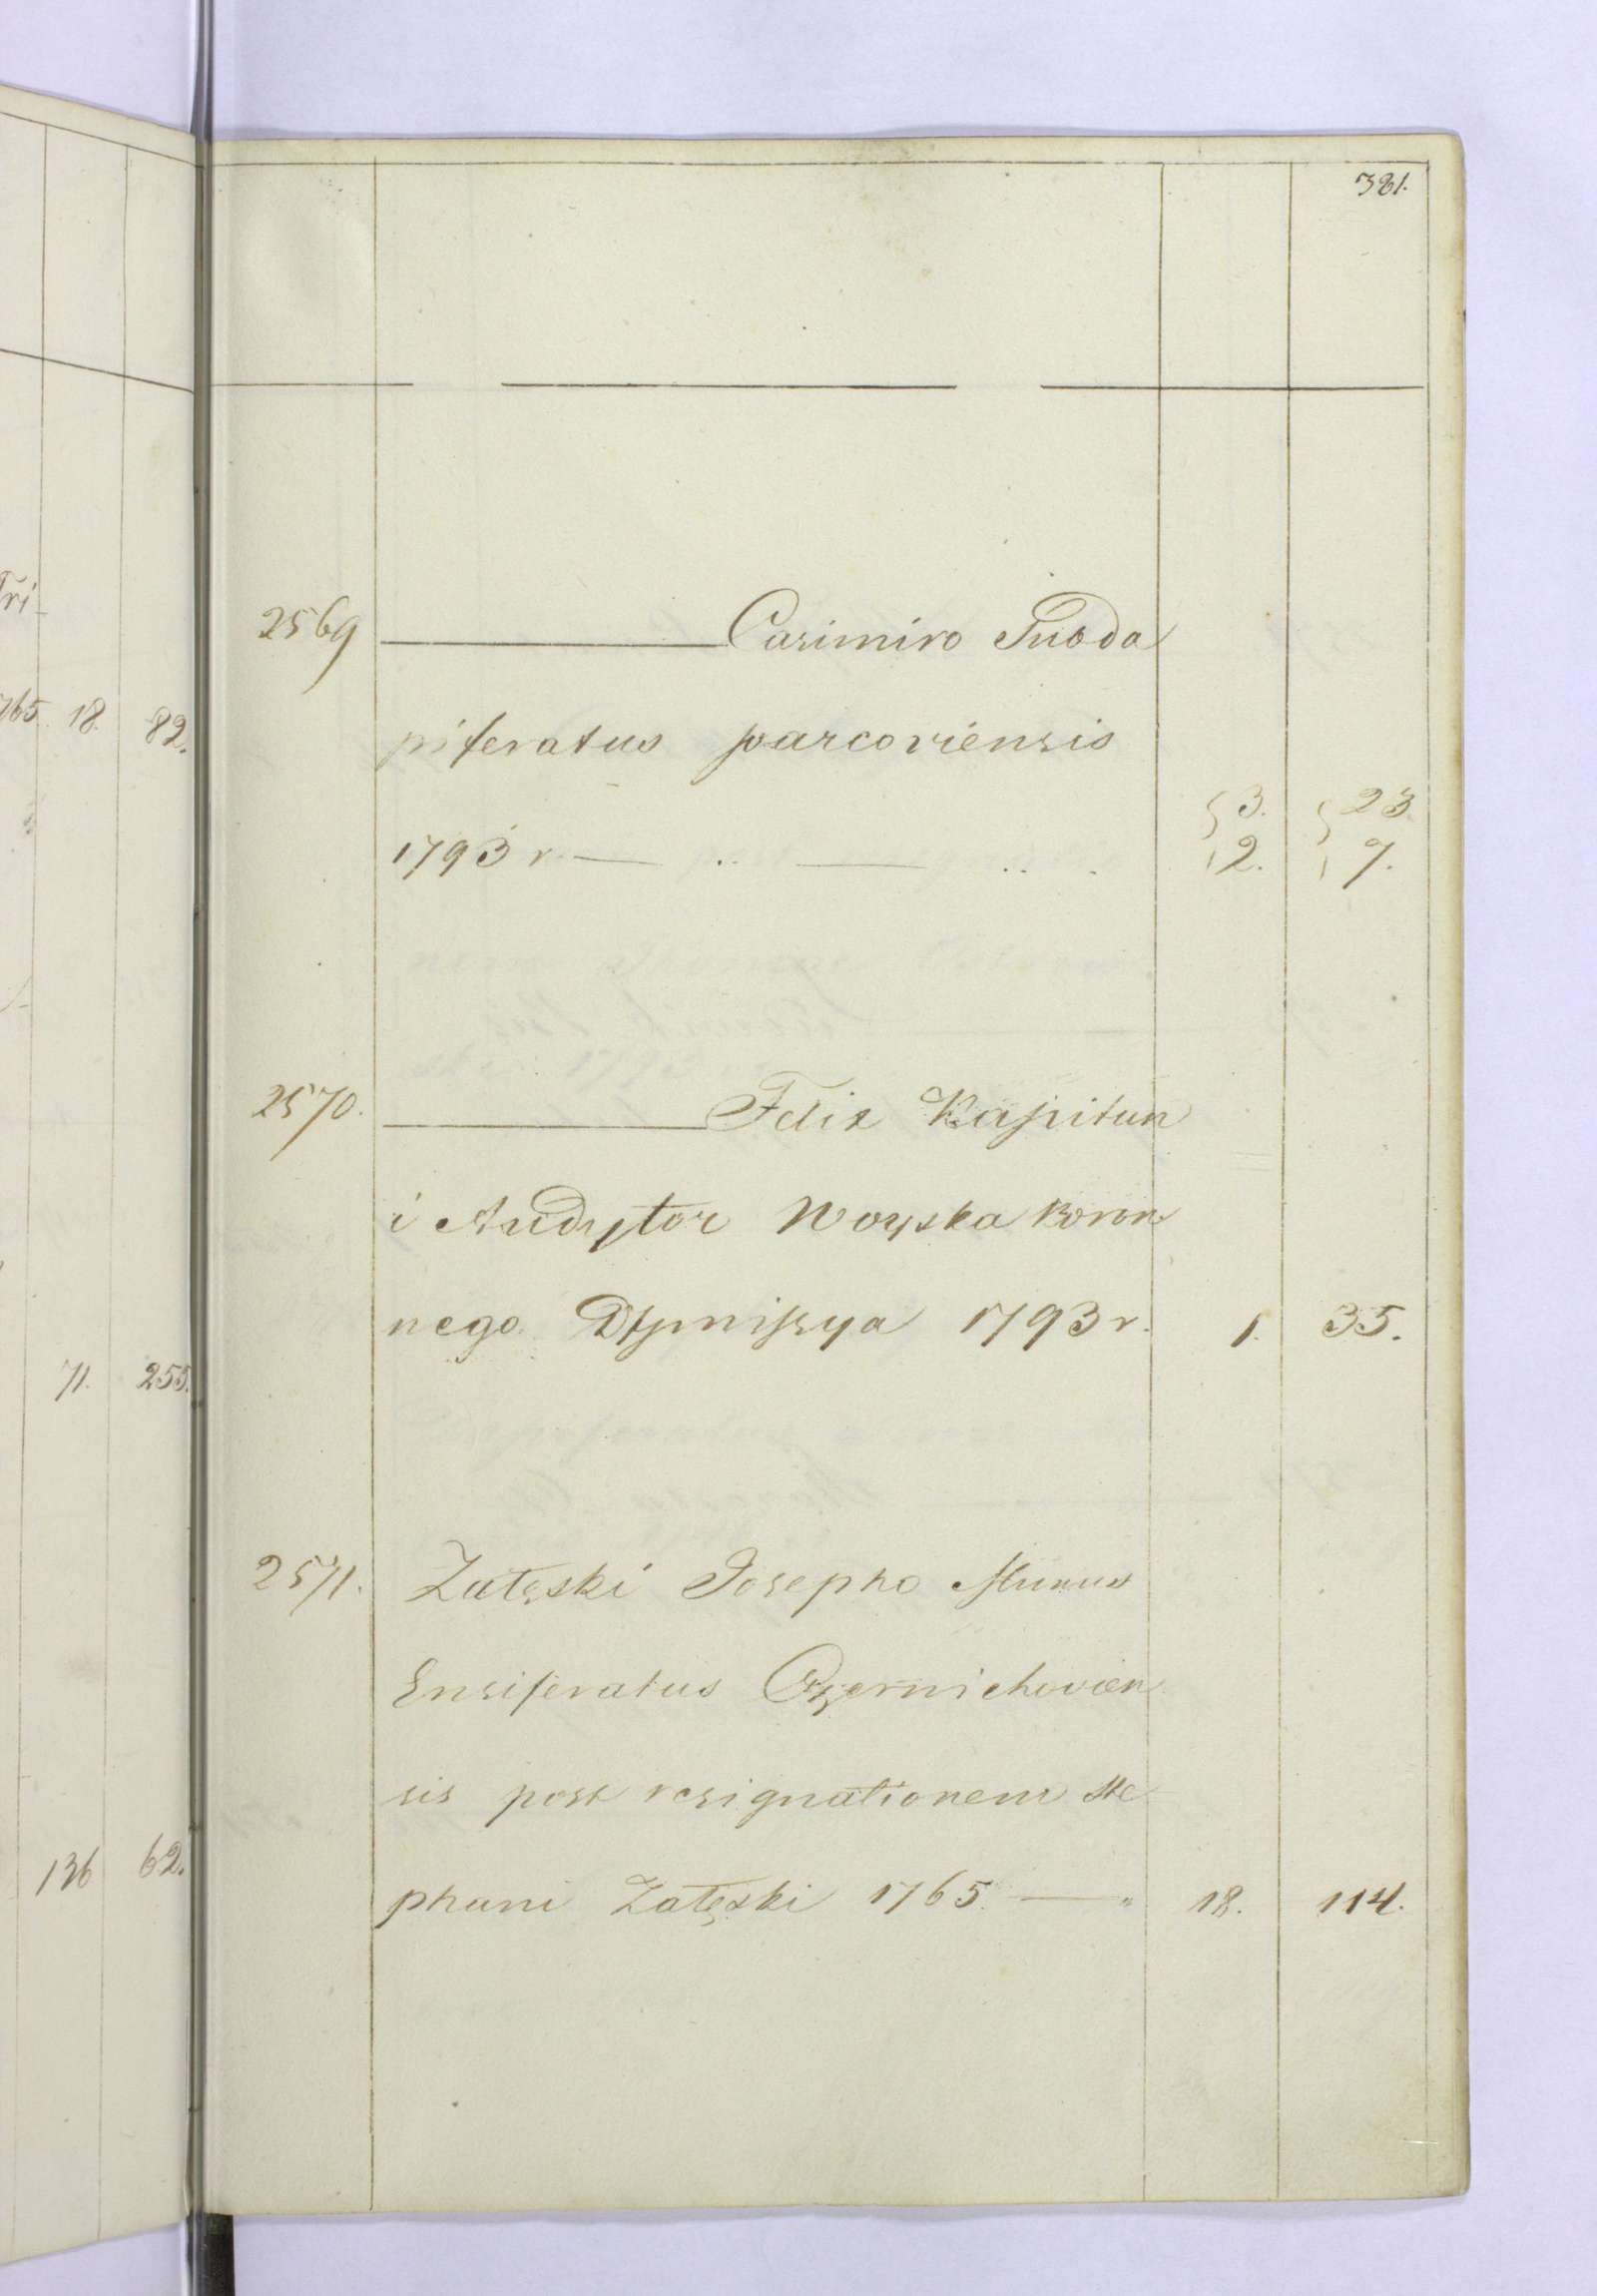 381.
2569 Casimiro Subda
piferatus parcoviensis
3. 23
1793 r. 2. 7.
2570. Felix Kapitan
i Audytor Woyska Koron
nego Dymissya 1793 r. 1. 35.
2571. Załęski Josepho Munus
Ensiferatus Czerniehovien
sis post resignationem Ste
phani Załęski 1765. 18. 114.
765 18. 82.
71. 255.
136 62.